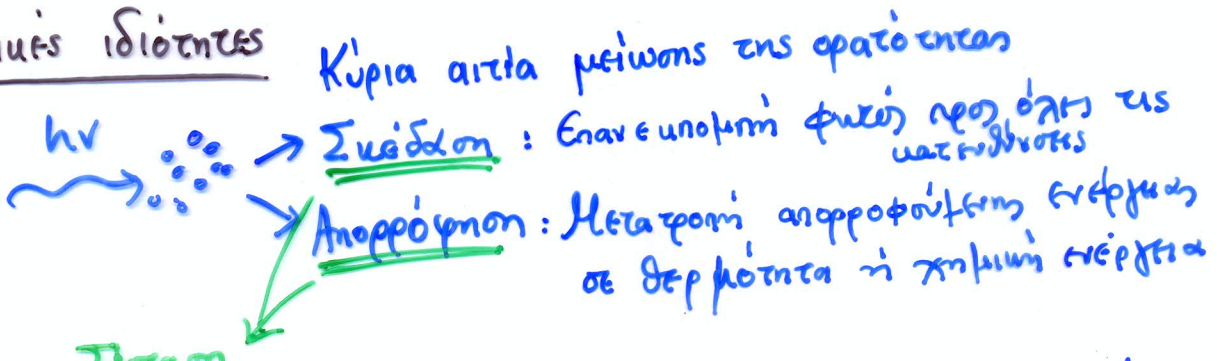 ιδιότητες
Κύρια αιτία μείωσης της ορατότητας
hν
Σκέδαση : Επανεκπομπή φωτός προς όλες τις
κατευθύνσεις
Απορρόφηση : Μετατροπή απορροφούμενης ενέργειας
σε θερμότητα ή χημική ενέργεια